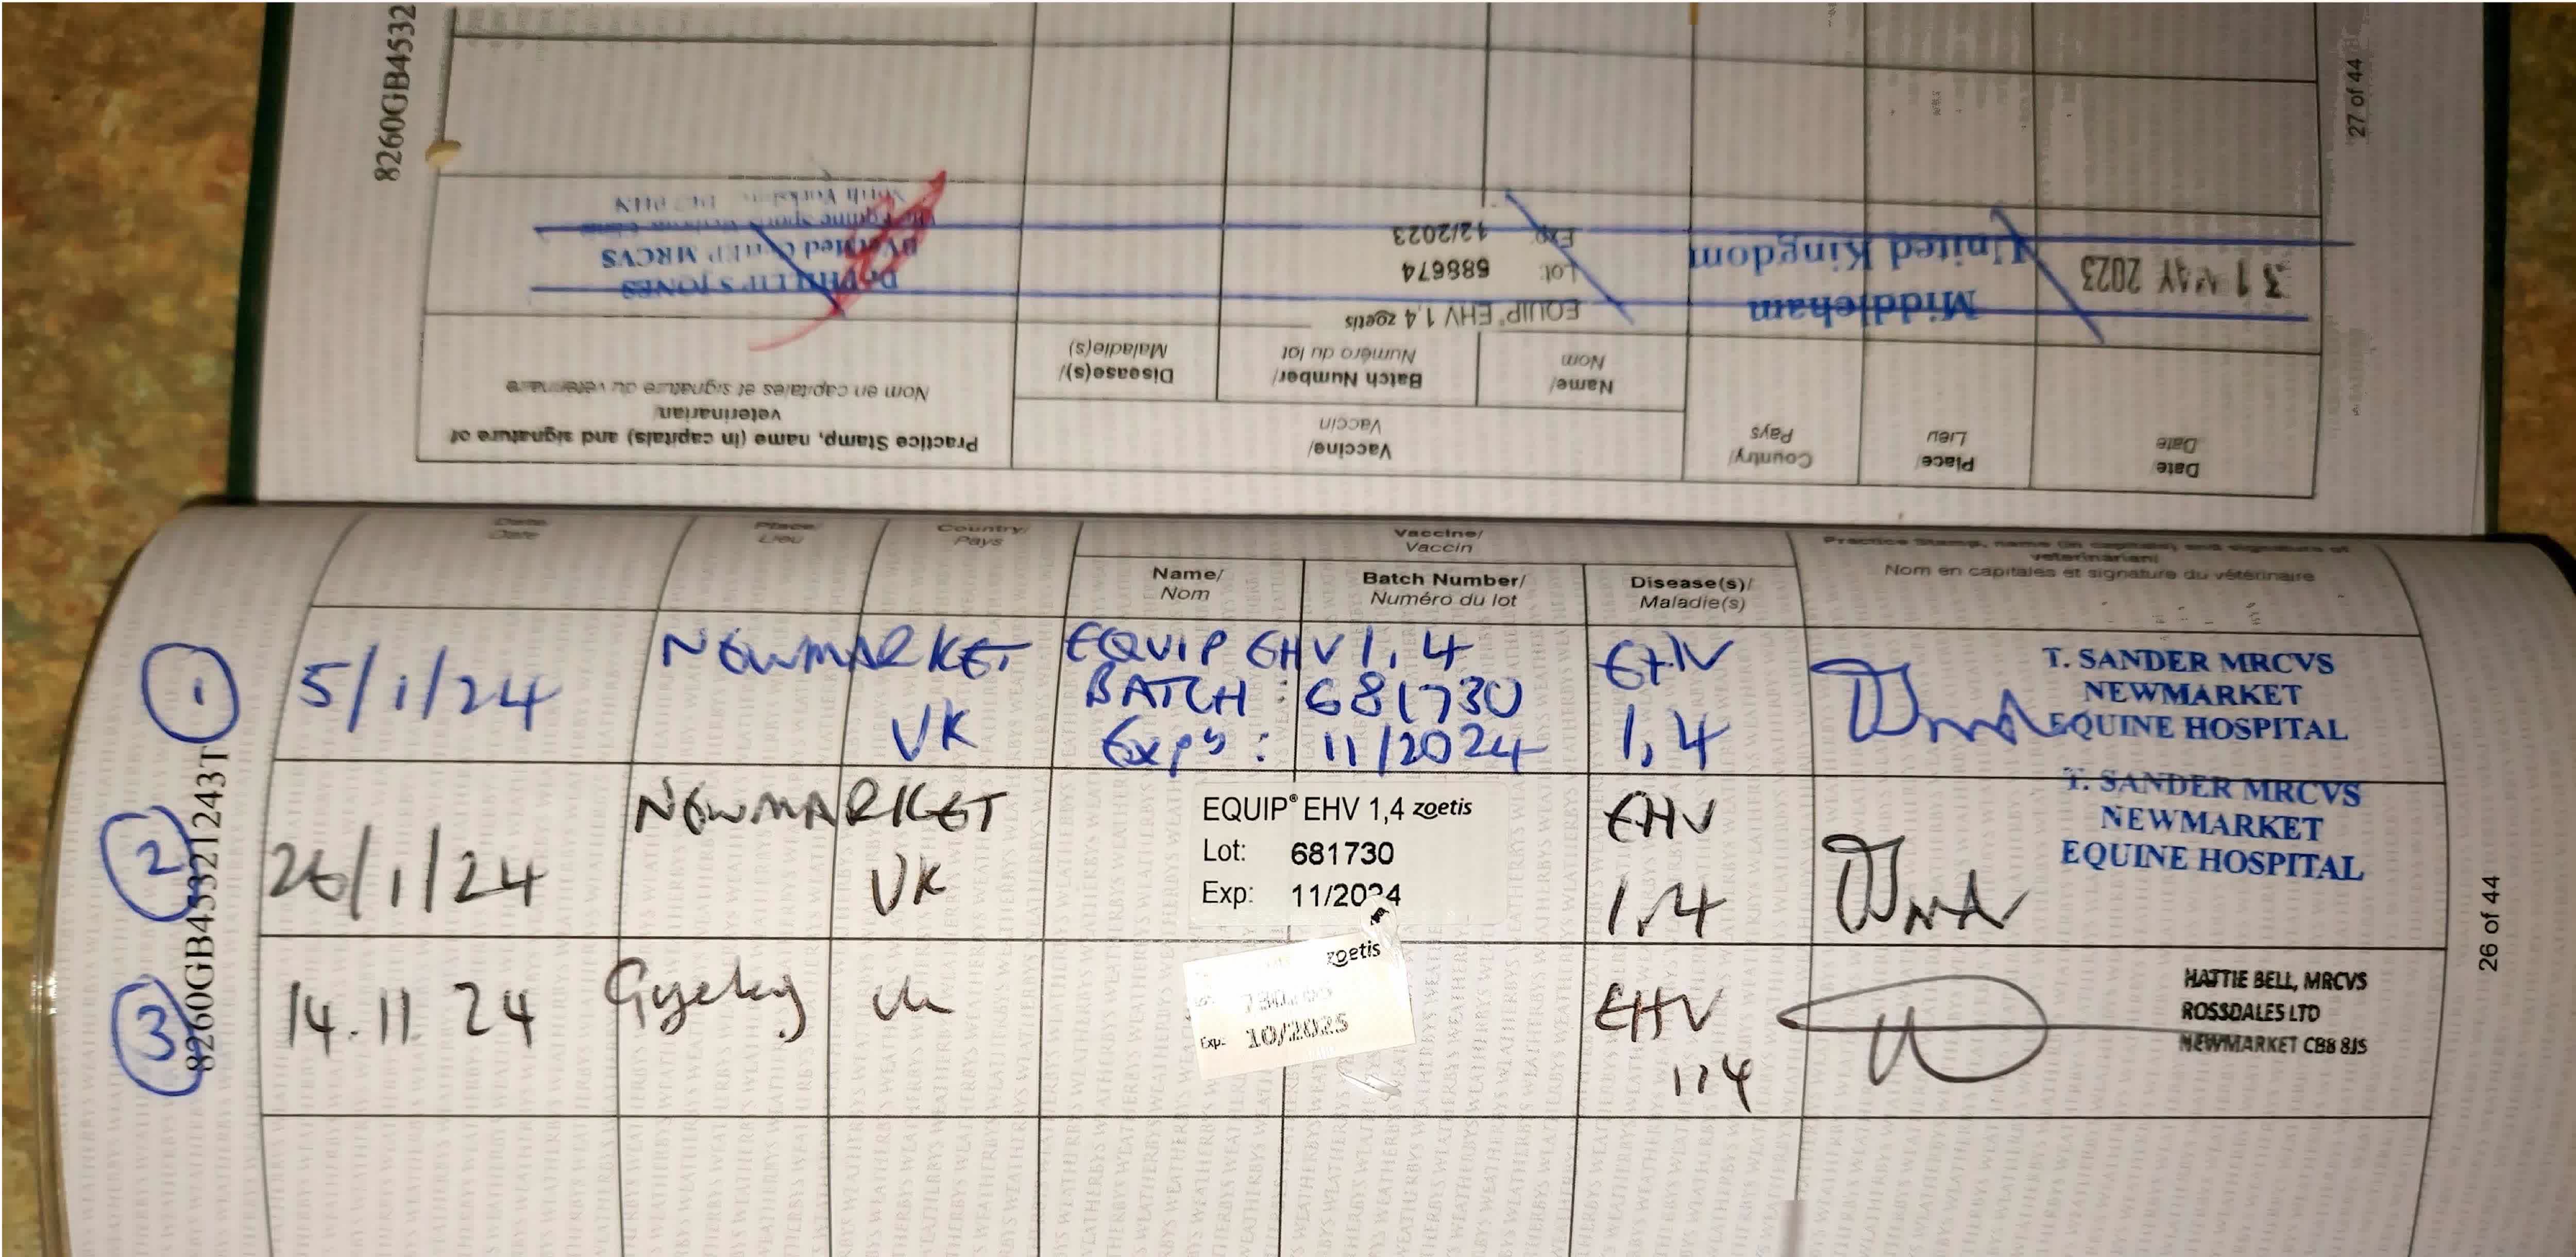 8260GB4532
27 of 44
Date
Date
Place/
Lieu
Country/
Pays
Vaccine/
Vaccin
Name/
Nom
Batch Number/
Numéro du lot
Disease(s)/
Maladie(s)
Practice Stamp, name (in capitals) and signature of
veterinarian/
Nom en capitales et signature du vétérinaire
31 MAY 2023
Middleham
United Kingdom
EQUIP® EHV 1,4 zoetis
Lot: 688674
Exp: 12/2023
Dr PHILLIP S JONES
BVetMed MRCVS
Equine Sports
North Yorkshire
Date
Date
Place/
Lieu
Country/
Pays
Vaccine/
Vaccin
Name/
Nom
Batch Number/
Numéro du lot
Disease(s)/
Maladie(s)
Practice Stamp, name (in capitals) and signature of
veterinarian/
Nom en capitales et signature du vétérinaire
1 5/1/24 NEWMARKET UK
EQUIP EHV 1,4
BATCH: 681730
Expy: 11/2024
EHV
1,4
T. SANDER MRCVS
NEWMARKET
EQUINE HOSPITAL
2 26/1/24 NEWMARKET UK
EQUIP® EHV 1,4 zoetis
Lot: 681730
Exp: 11/2024
EHV
1,4
T. SANDER MRCVS
NEWMARKET
EQUINE HOSPITAL
3 14.11 24 UK
zoetis
Exp: 10/2025
EHV
1,4
HATTIE BELL, MRCVS
ROSSDALES LTD
NEWMARKET CB8 8JS
8260GB45321243T
26 of 44